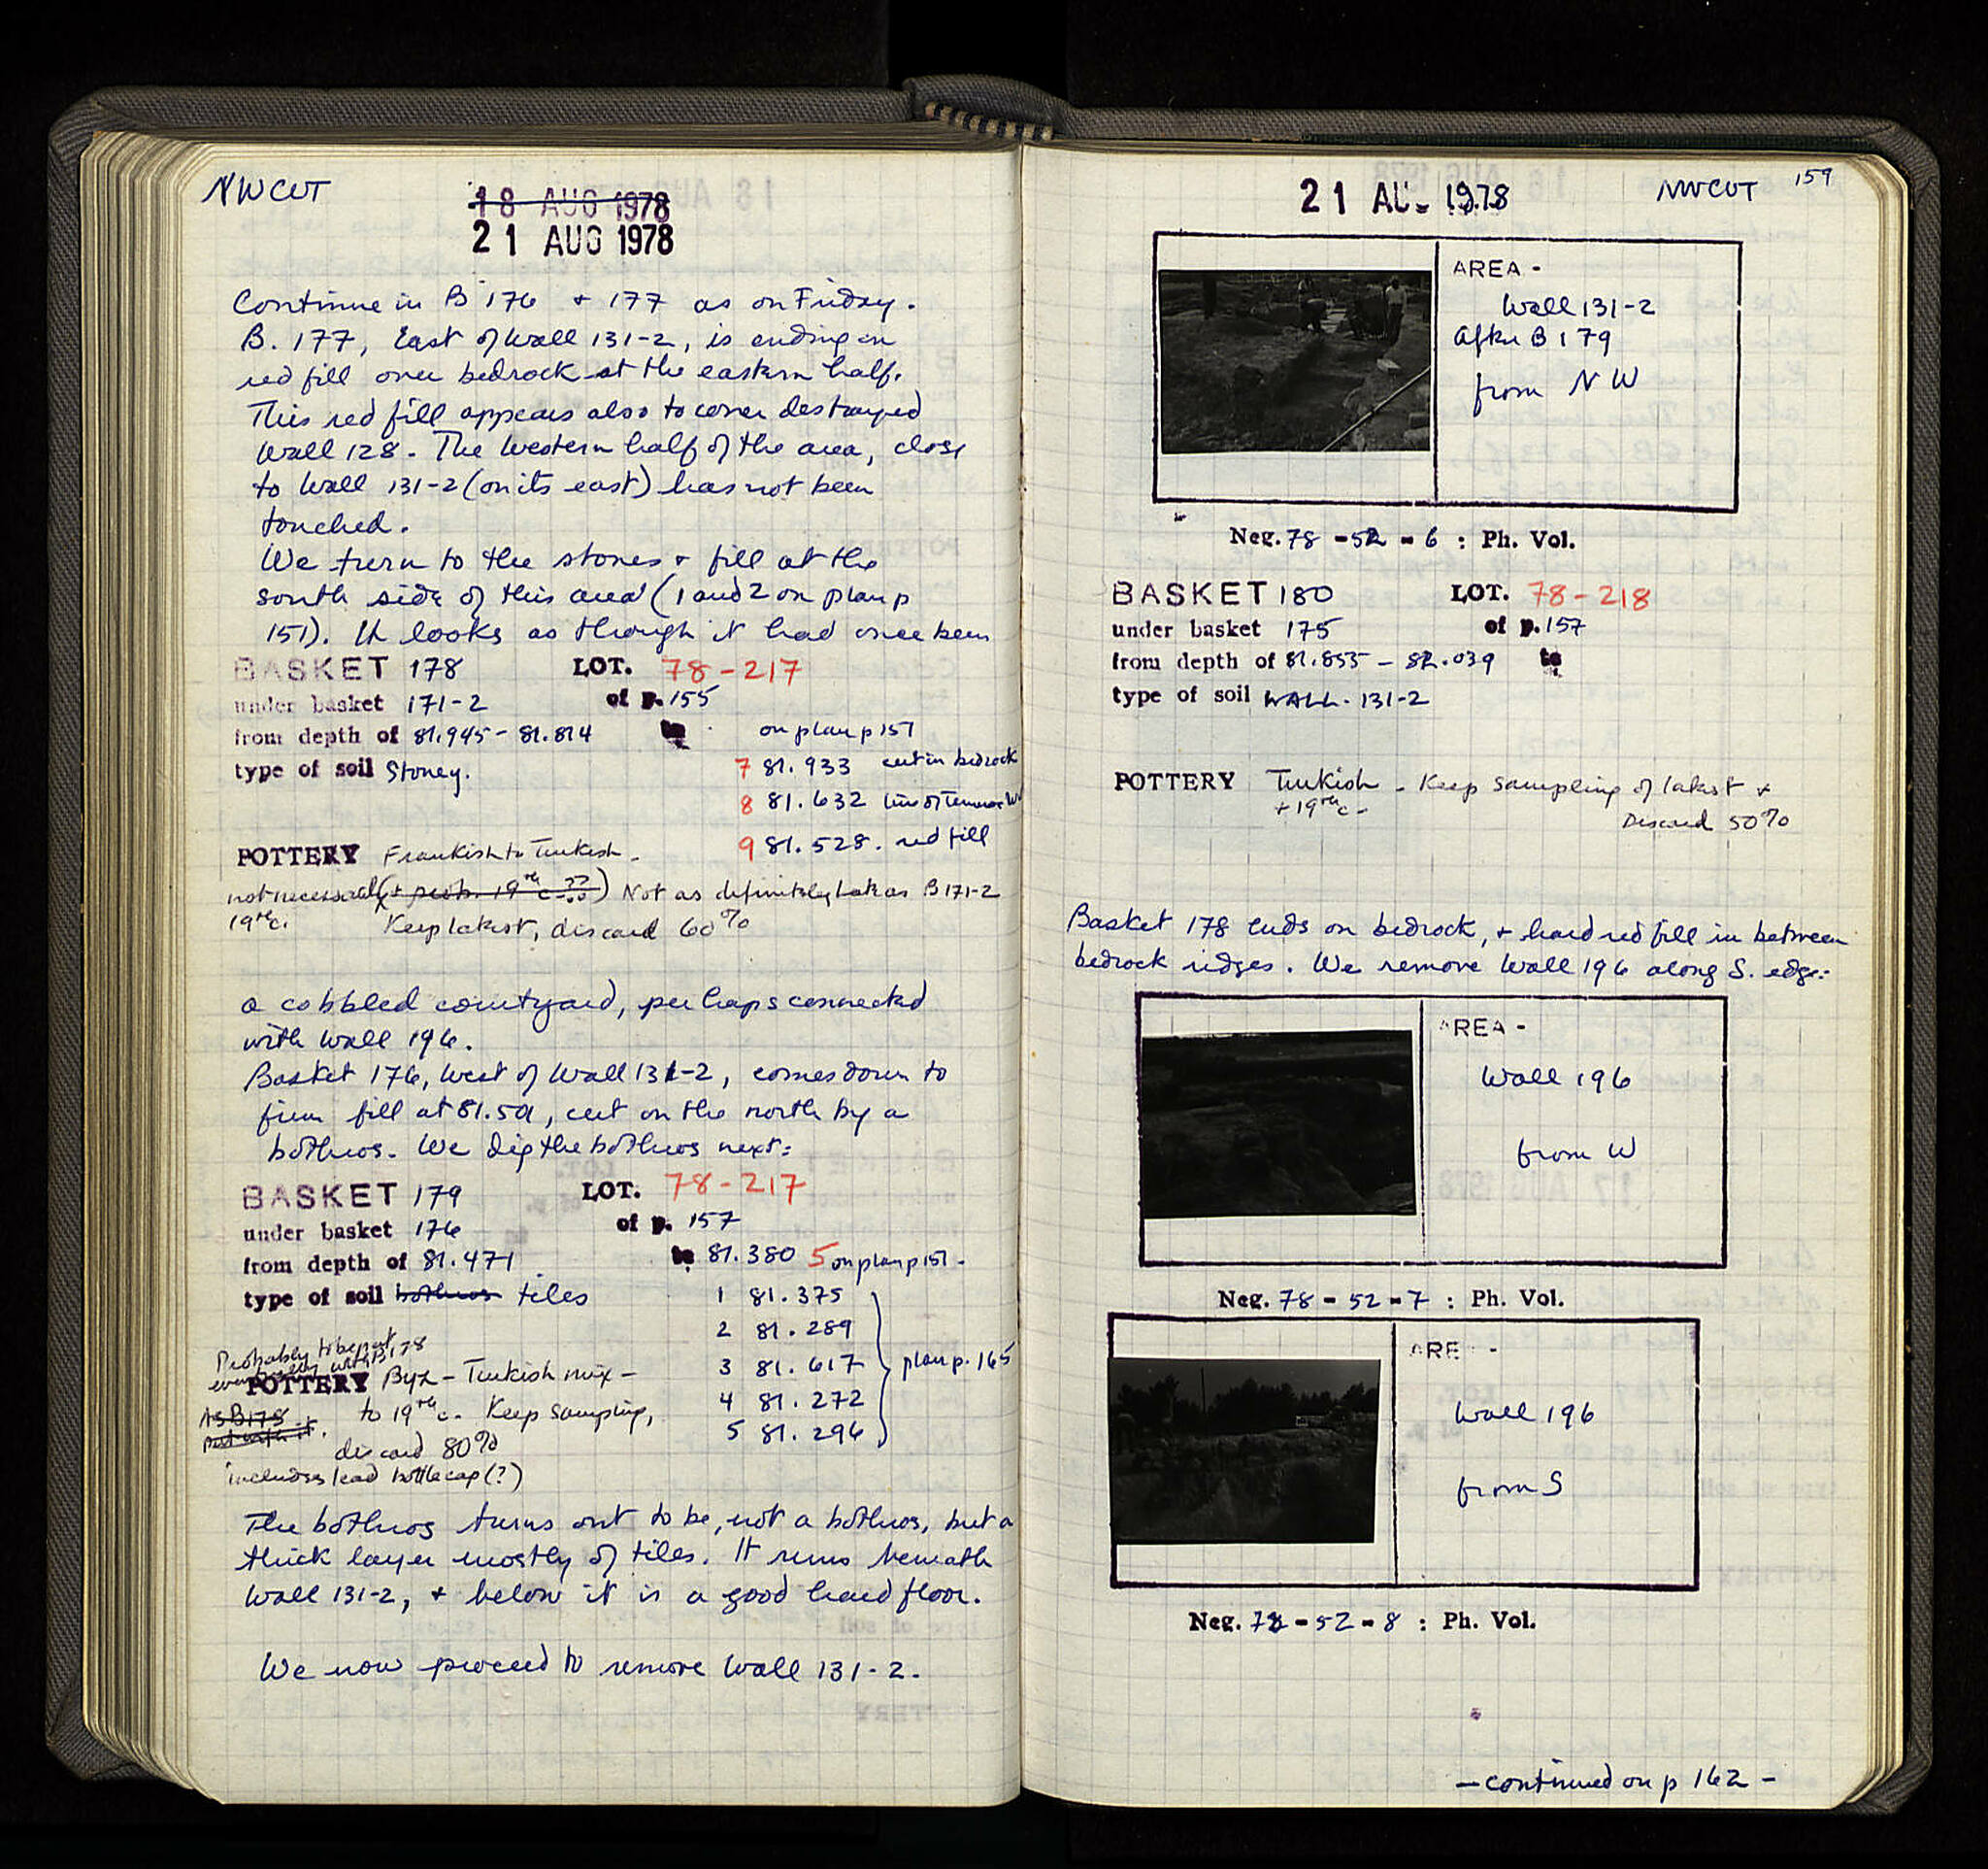 NWCUT
18 AUG 1978
21 AUG 1978
Continue in B 176 + 177 as on Friday.
B. 177, East of Wall 131-2, is ending in
red fill over bedrock at the eastern half.
This red fill appears also to cover destroyed
Wall 128. The Western half of the area, close
to Wall 131-2 (on its east) has not been
touched.
We turn to the stones + fill at the
south side of this area (1 and 2 on plan p
151). It looks as though it had once been
BASKET 178 LOT. 78-217
under basket 171-2 of p. 155
from depth of 81.945 - 81.814 to on plan p 151
type of soil Stoney. 7 81.933 cut in bedrock
8 81.632 line of
9 81.528. red fill
POTTERY Frankish to Turkish.
not necessarily (+ prob. 19th c ??) Not as definitely late as B 171-2
19th c. Keep latest, discard 60%
a cobbled courtyard, perhaps connected
with Wall 196.
Basket 176, West of Wall 131-2, comes down to
firm fill at 81.50, cut on the north by a
bothros. We dig the bothros next:
BASKET 179 LOT. 78-217
under basket 176 of p. 157
from depth of 81.471 to 81.380 5 on plan p 151.
type of soil bothros tiles 1 81.375
2 81.289
3 81.617 plan p. 165
4 81.272
5 81.296
Probably to be put
eventually with B178
POTTERY Byz - Turkish mix -
AS B178 + to 19th c. Keep sampling,
put with it. discard 80%
includes lead bottlecap (?)
The bothros turns out to be, not a bothros, but a
thick layer mostly of tiles. It runs beneath
Wall 131-2, + below it is a good hard floor.
We now proceed to remove Wall 131-2.
21 AU. 1978 NWCUT 159
AREA -
Wall 131-2
After B 179
from NW
Neg. 78 - 52 - 6 : Ph. Vol.
BASKET 180 LOT. 78-218
under basket 175 of p. 157
from depth of 81.855 - 82.039 to
type of soil WALL. 131-2
POTTERY Turkish - Keep sampling of latest +
+ 19th c - Discard 50%
Basket 178 ends on bedrock, + hard red fill in between
bedrock ridges. We remove Wall 196 along S. edge:
AREA -
Wall 196
from W
Neg. 78 - 52 - 7 : Ph. Vol.
AREA -
Wall 196
from S
Neg. 78 - 52 - 8 : Ph. Vol.
- continued on p 162 -